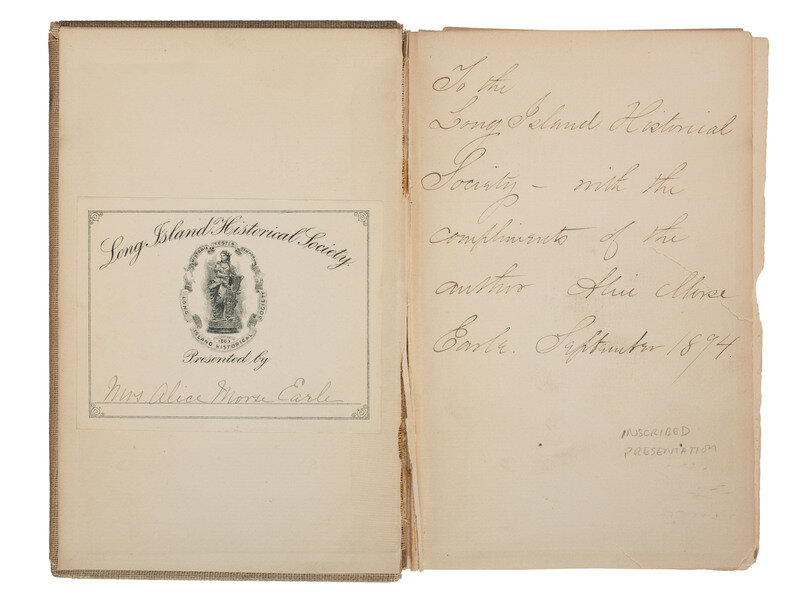 Long Island Historical Society.
LONG ISLAND HISTORICAL SOCIETY
1863
Presented by
Mrs Alice Morse Earle
To the
Long Island Historical
Society – with the
compliments of the
author Alice Morse
Earle. September 1894.
INSCRIBED
PRESENTATION